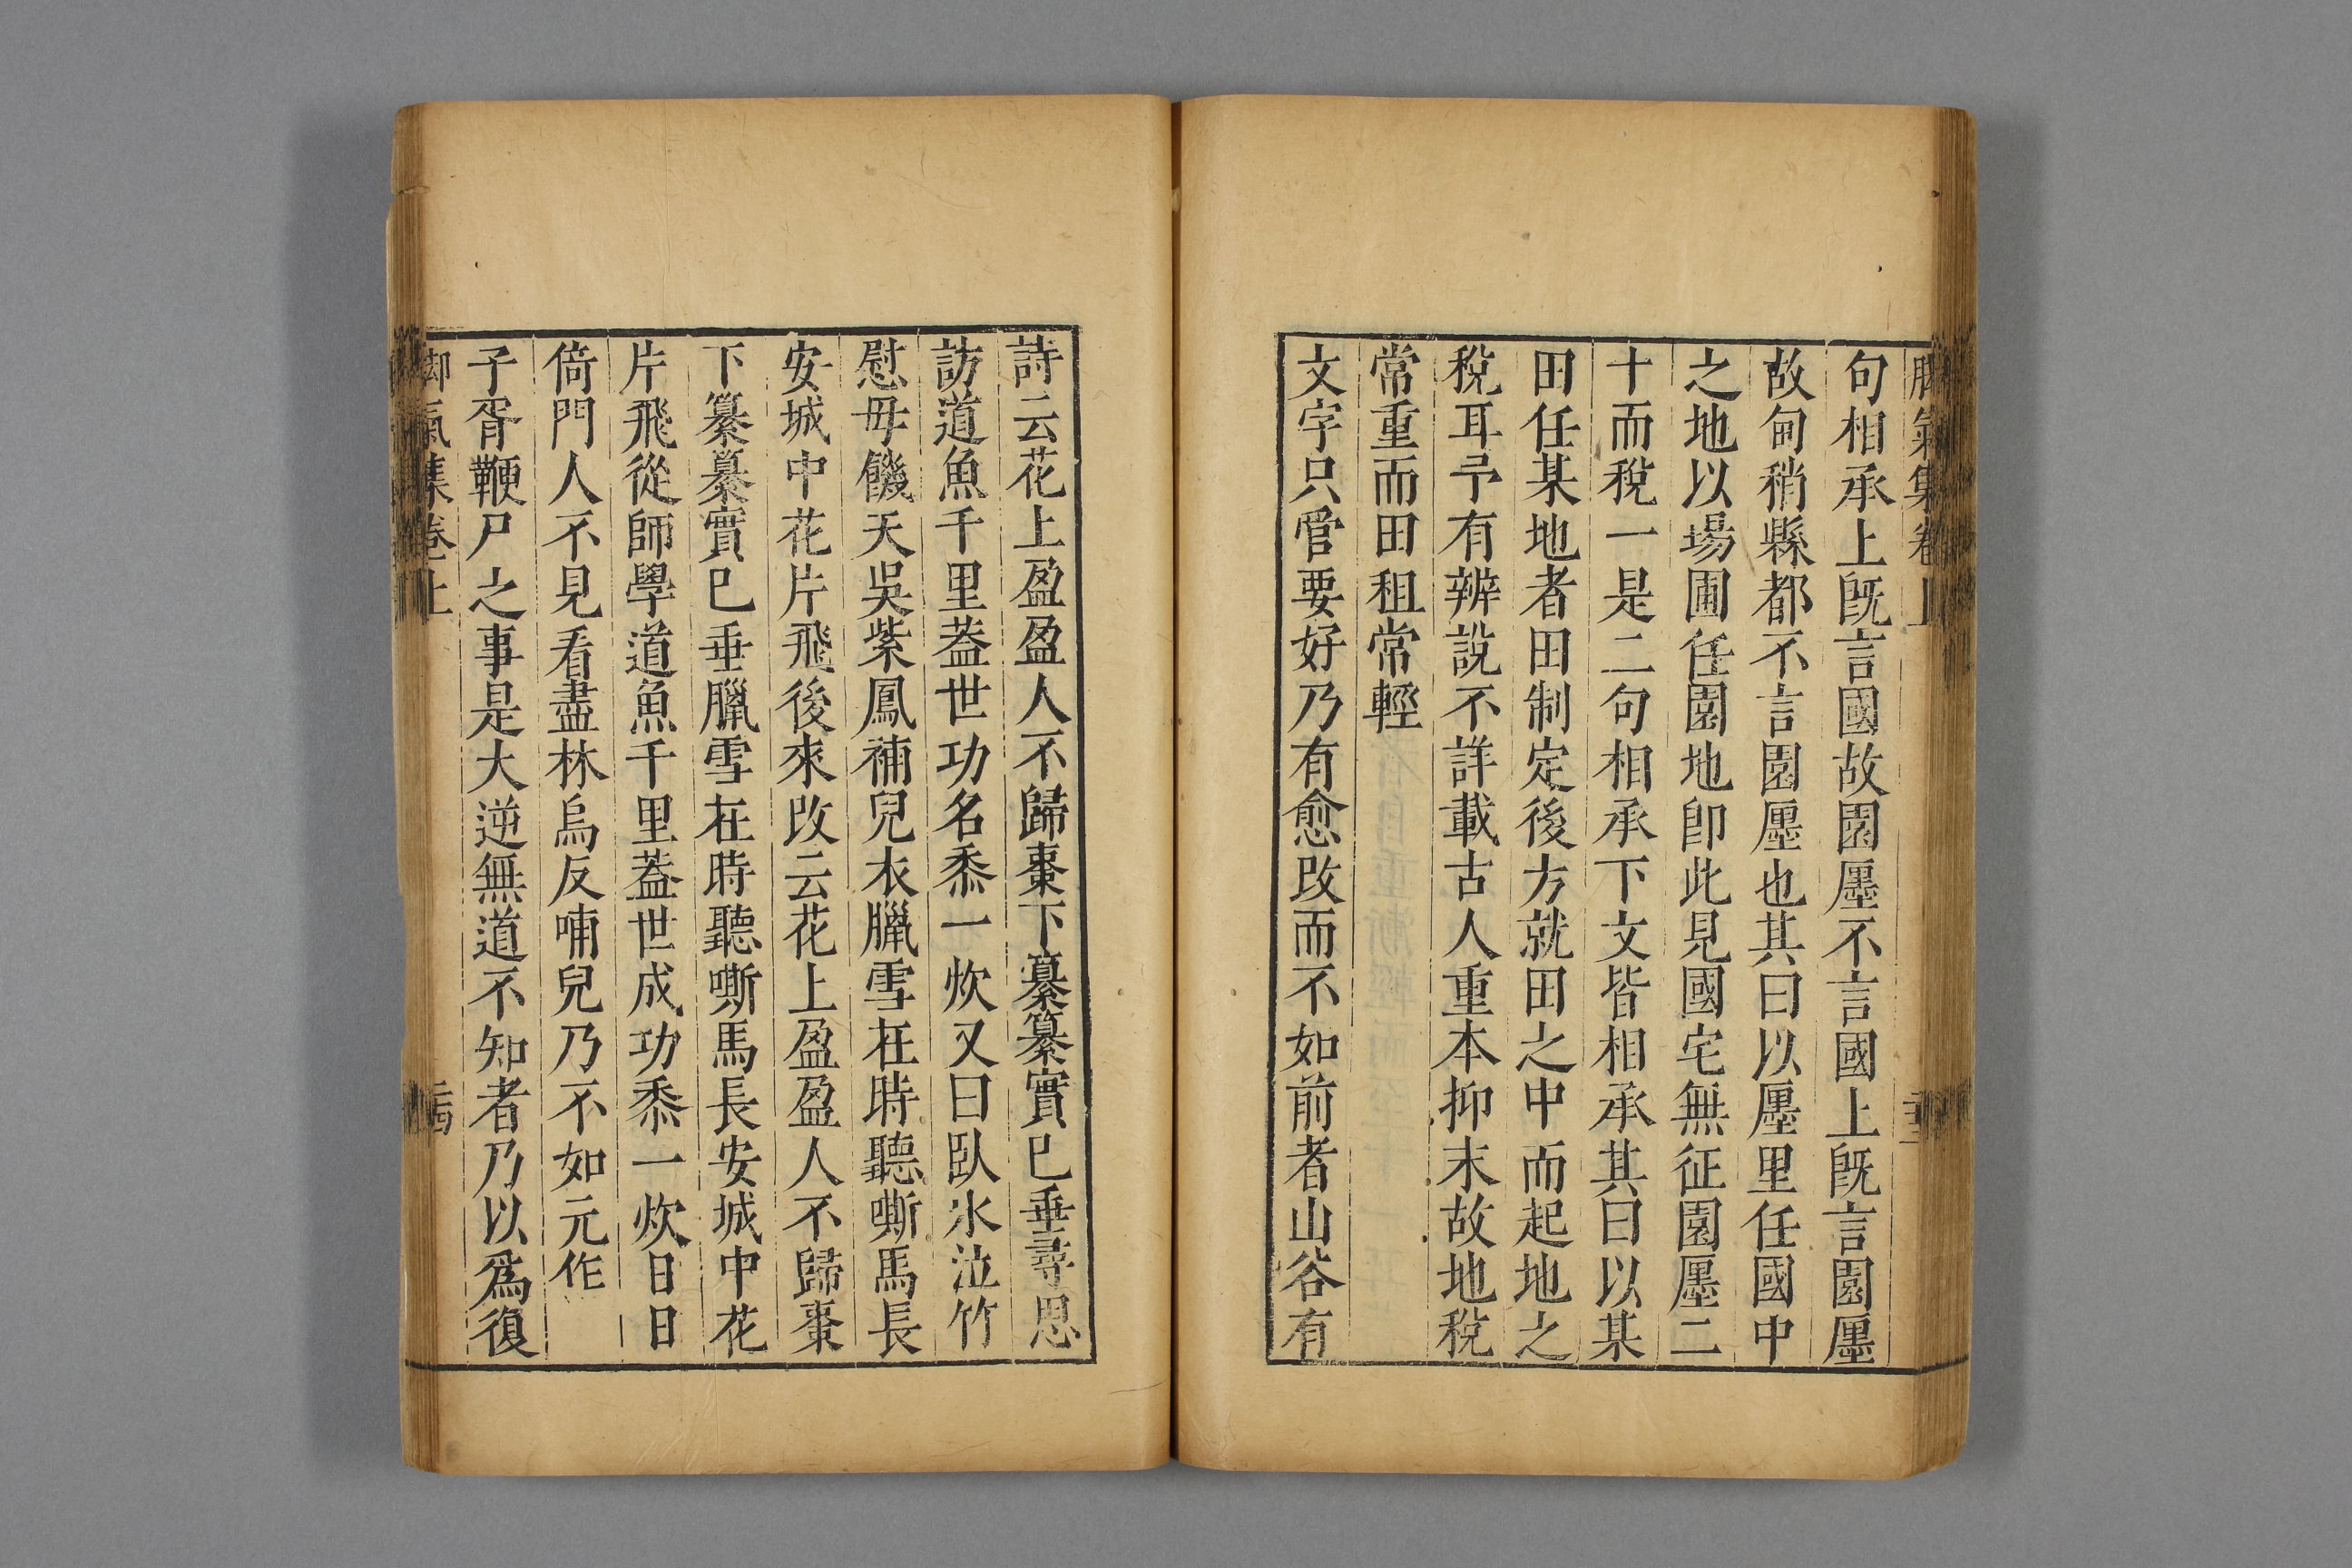 腳氣集卷上
句相承上既言國故園廛不言國上既言園廛
故甸稍縣都不言園廛也其曰以廛里任國中
之地以場圃任園地卽此見國宅無征園廛二
十而稅一是二句相承下文皆相承其曰以某
田任某地者田制定後方就田之中而起地之
稅耳予有辨說不詳載古人重本抑末故地稅
常重而田租常輕
文字只管要好乃有愈改而不如前者山谷有
詩云花上盈盈人不歸棗下纂纂實已垂尋思
訪道魚千里蓋世功名黍一炊又曰臥氷泣竹
慰母饑天吳紫鳳補兒衣臘雪在時聽嘶馬長
安城中花片飛後來改云花上盈盈人不歸棗
下纂纂實已垂臘雪在時聽嘶馬長安城中花
片飛從師學道魚千里蓋世成功黍一炊日日
倚門人不見看盡林烏反哺兒乃不如元作
子胥鞭尸之事是大逆無道不知者乃以爲復
腳氣集卷上